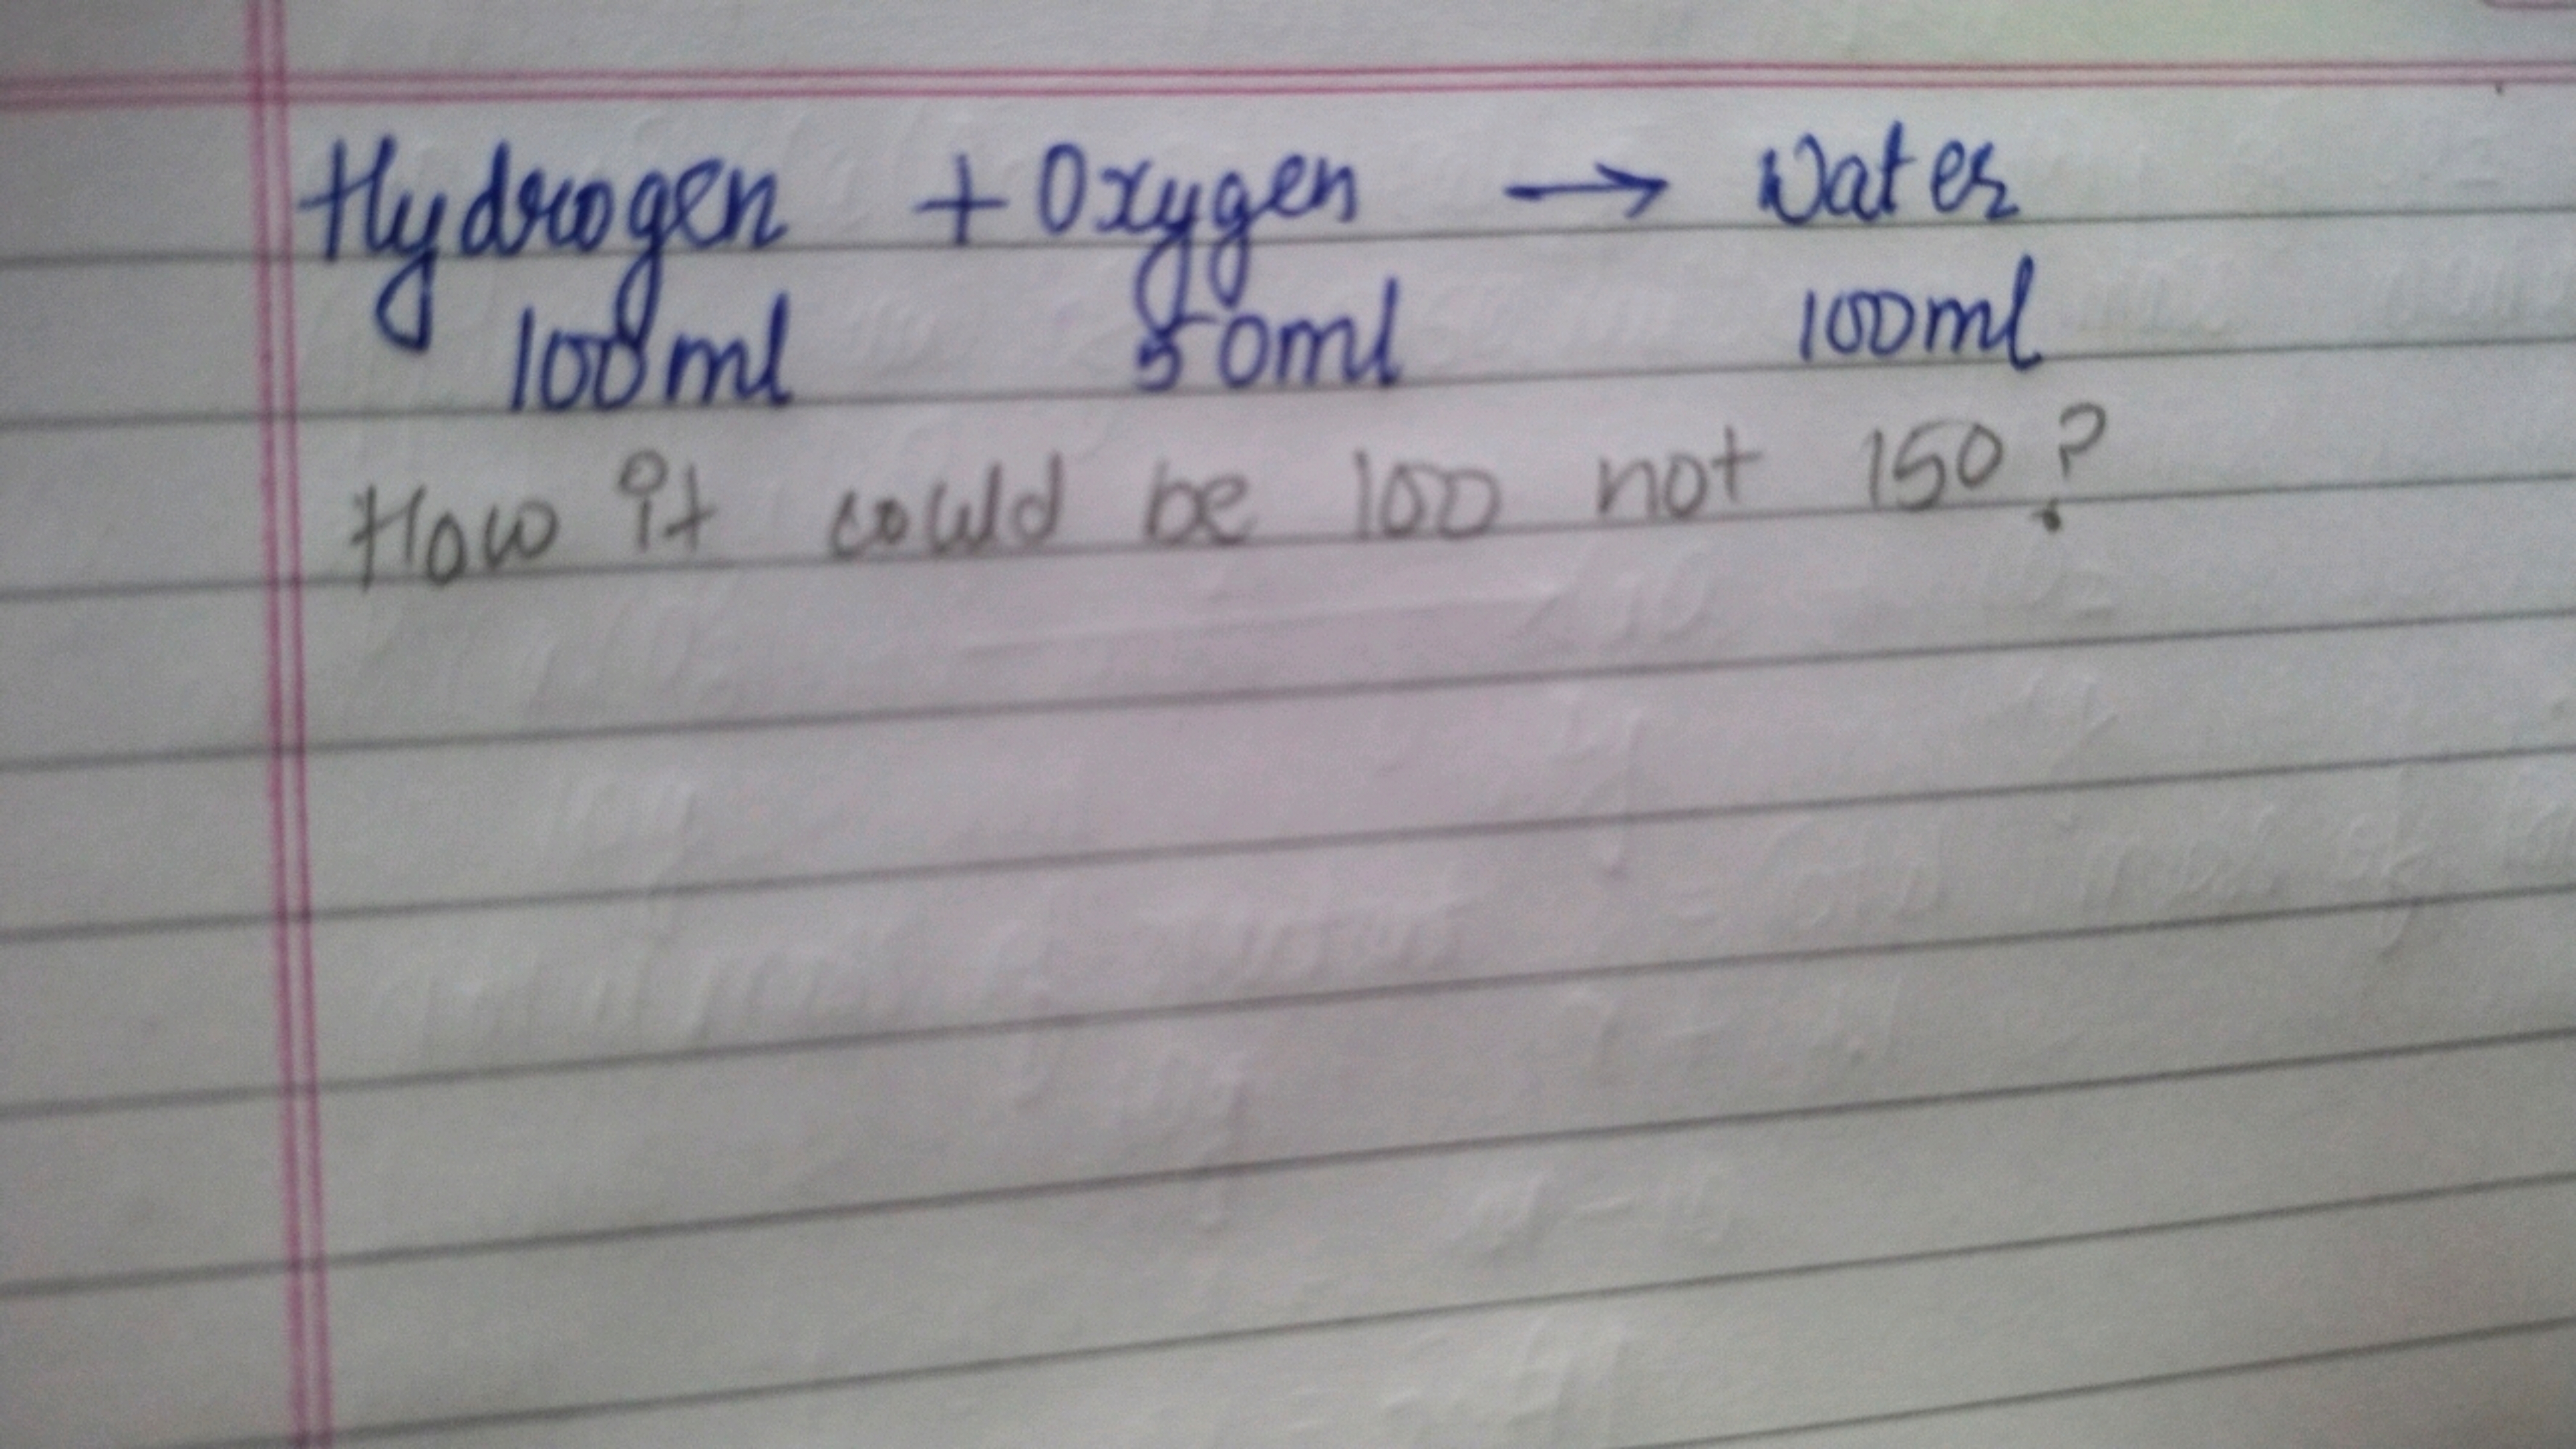 Hydrogen + Oxygen → Water
100ml 50ml 100ml
How it could be 100 not 150?